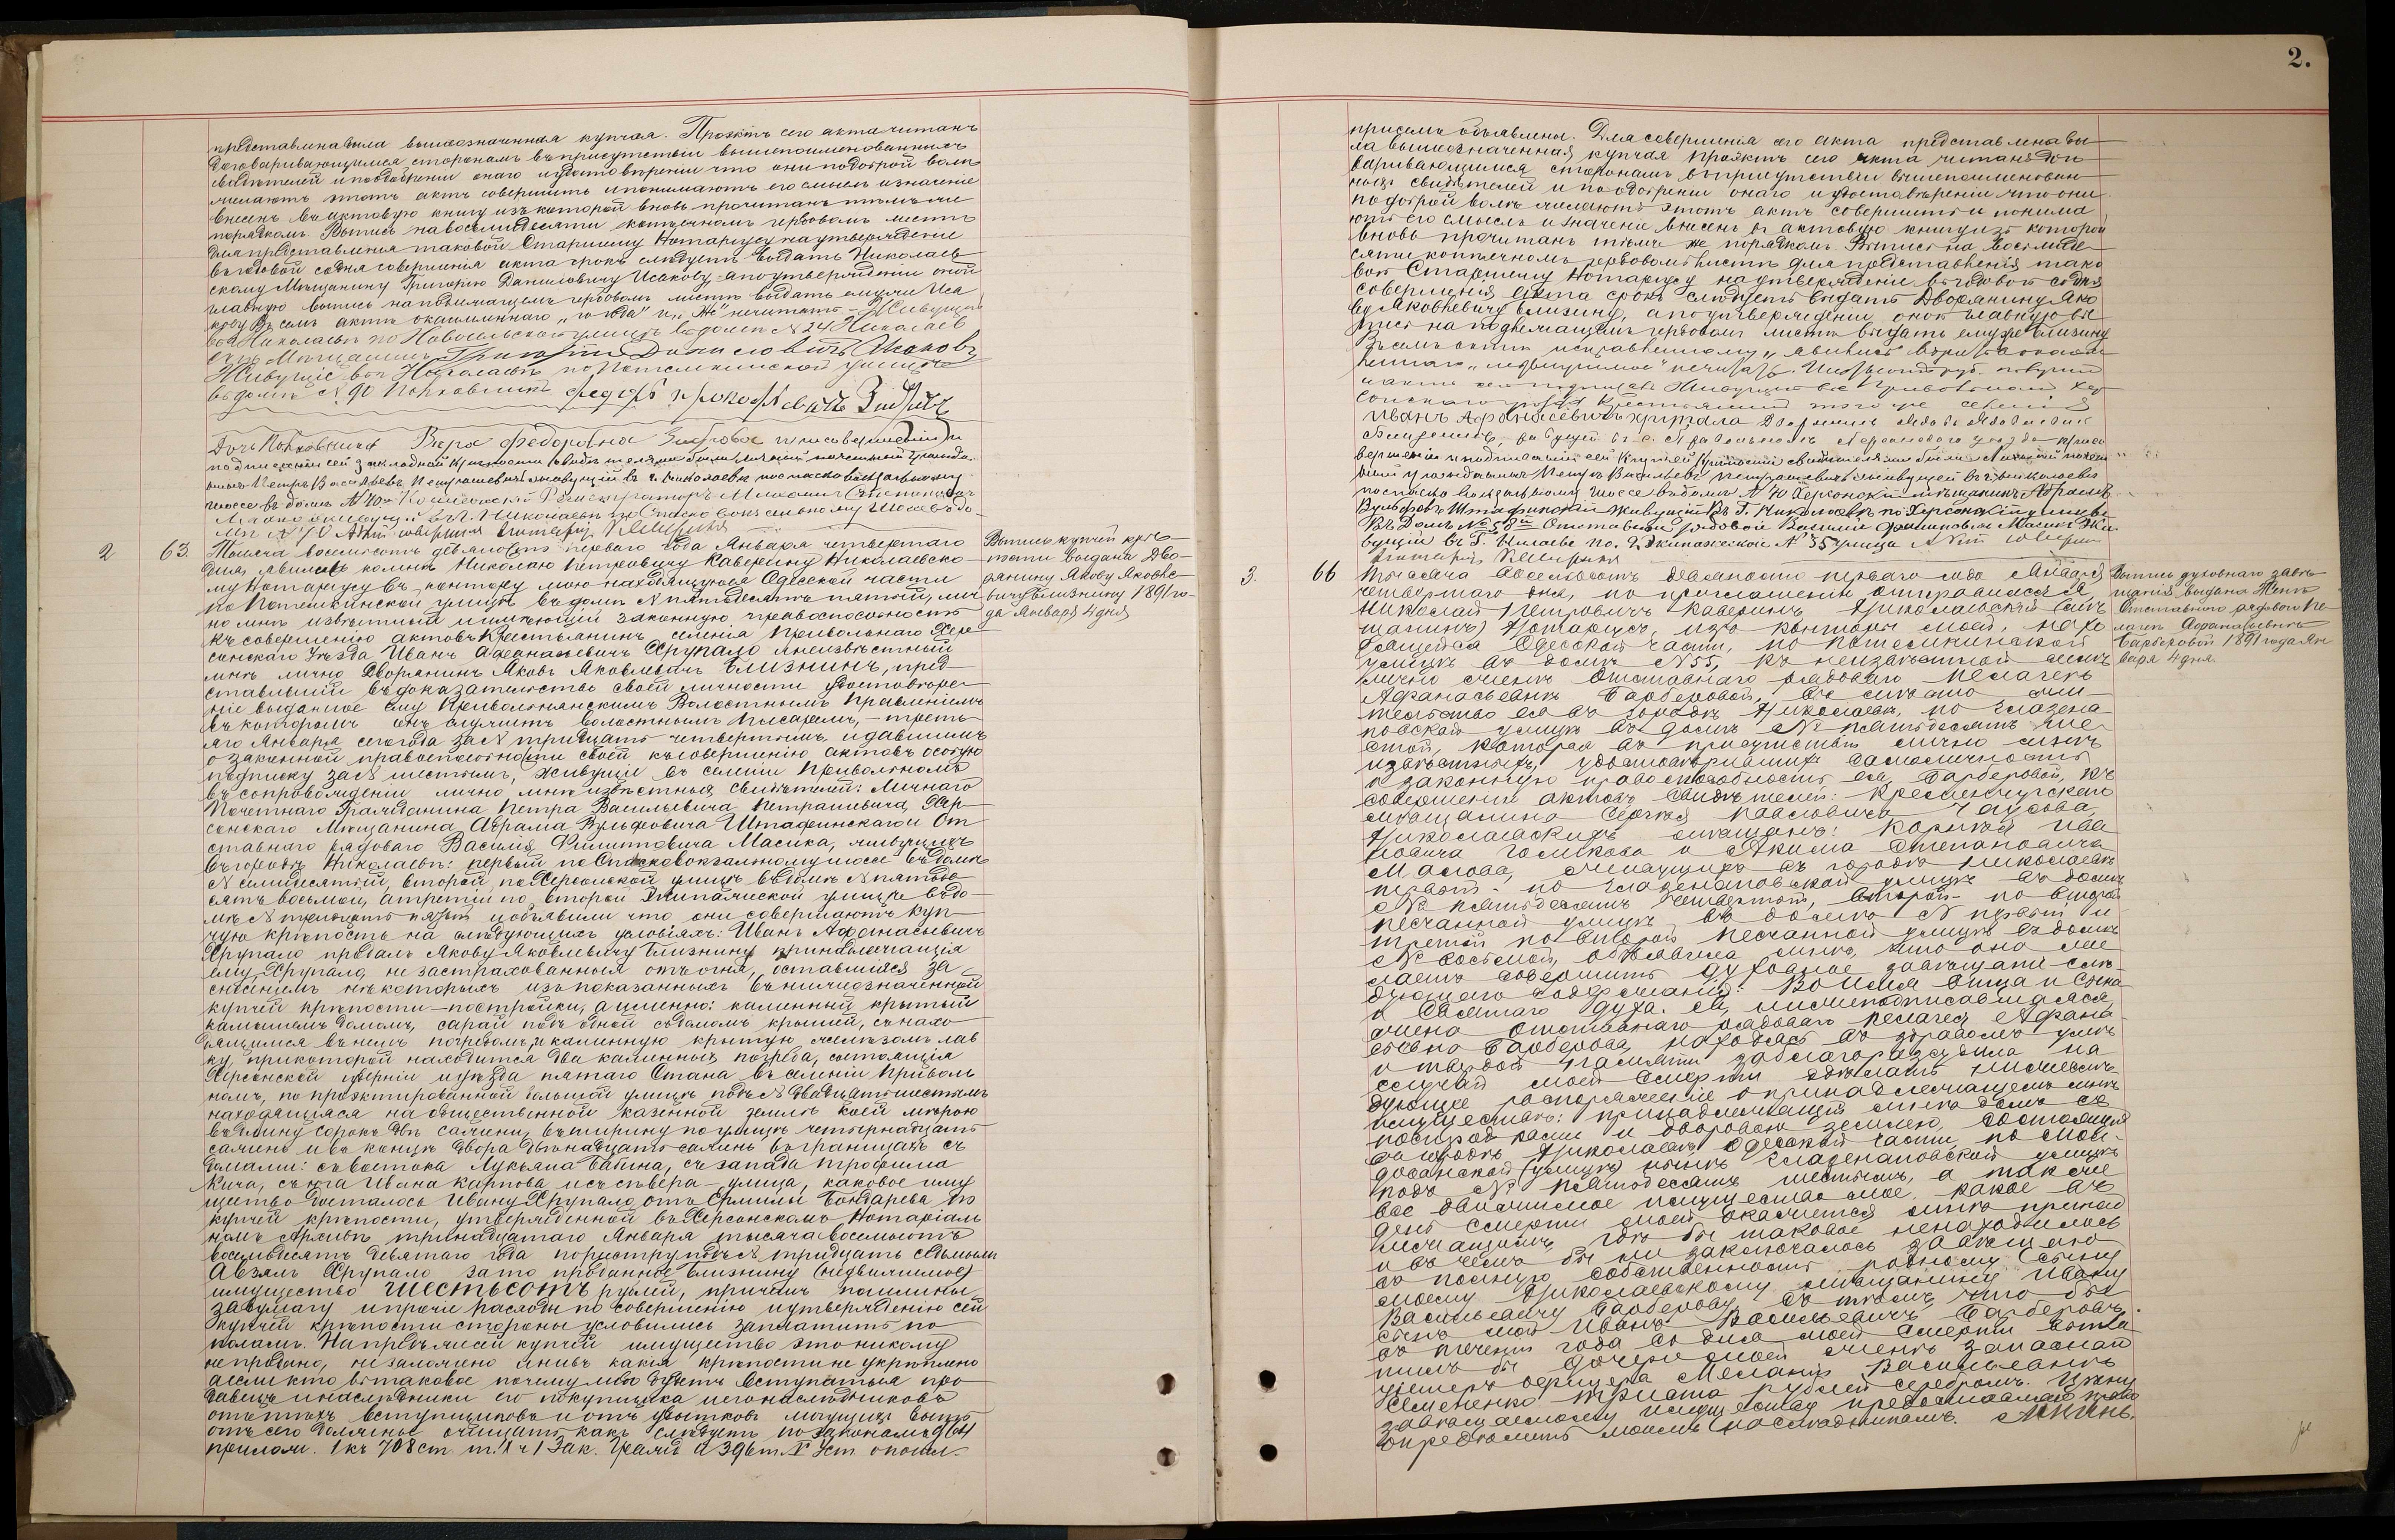 2.
представлена была вышеозначенная купчая. Проэктъ сего акта читанъ
договаривающимся сторонамъ въ присутствіи вышепоименованныхъ
свидѣтелей и по одобреніи онаго и удостовѣреніи что они по доброй волѣ
желаютъ этотъ актъ совершить и понимаютъ его смыслъ и значеніе
внесенъ въ актовую книгу изъ которой вновь прочитанъ тѣмъ же
порядкомъ. Выпись на восьмидесяти копѣечномъ гербовомъ листѣ
для представленія таковой Старшему Нотаріусу на утвержденіе
въ годовой со дня совершенія акта срокъ слѣдуетъ выдать Николаев
скому Мѣщанину Григорію Даниловичу Исакову, а по утвержденіи оной
главную выпись на подлежащемъ гербовомъ листѣ выдать ему же Иса
кову. Въ семъ актѣ
въ г. Николаевѣ по Новосельской улицѣ въ домѣ № 24 Николаев
скій Мѣщанинъ Григорій Даниловичъ Исаковъ
Живущіе въ г. Николаевѣ по Потемкинской улицѣ
въ домѣ № 90 Полковникъ Федоръ Прокофьевичъ
Дочь Полковника Вѣра Федоровна при совершеніи и
подписаніи сей закладной крѣпости свидѣтелями были Личный почетный гражда
нинъ Петръ Васильевъ Петрашевичъ живущій въ г. Николаевѣ по Спасковокзальному
шоссе въ домѣ № 70й
живущій въ г. Николаевѣ по Спасковокзальному шоссе въ до
мѣ № 70 Актъ совершилъ Нотаріусъ Каверинъ
2 63. Тысяча восемьсотъ девяносто перваго года Января четвертаго
дня, явились ко мнѣ Николаю Петровичу Каверину Николаевско
му Нотаріусу въ контору мою находящуюся Одесской части
по Потемкинской улицѣ въ домѣ № пятьдесятъ пятый, лич
но мнѣ извѣстный имѣющій законную правоспособность
къ совершенію актовъ Крестьянинъ селенія Привольнаго Хер
сонскаго Уѣзда Иванъ Афанасьевичъ Хрупало и неизвѣстный
мнѣ лично Дворянинъ Яковъ Яковлевичъ Близнинъ, пред
ставившій въ доказательство своей личности удостовѣре
ніе выданное ему Привольнянскимъ Волостнымъ Правленіемъ
въ которомъ онъ служитъ волостнымъ писаремъ, — треть
яго Января сего года за № тридцать четвертымъ, и давшимъ
о законной правоспособности своей къ совершенію актовъ особую
подписку за № шестымъ, живущіе въ селеніи Привольномъ
въ сопровожденіи лично мнѣ извѣстныхъ свидѣтелей: Личнаго
Почетнаго Гражданина Петра Васильевича Петрашевича, Хер
сонскаго Мѣщанина Абрама Вульфовича Штафинскаго и От
ставнаго рядоваго Василія Филипповича Масика, живущихъ
въ городѣ Николаевѣ: первый по Спасковокзальному шоссе въ домѣ
№ семидесятый, второй по Херсонской улицѣ въ домѣ № пятьде
сятъ восьмой, а третій по второй Экипажеской улицѣ въ до
мѣ № тридцать пятый и объявили что они совершаютъ куп
чую крѣпость на слѣдующихъ условіяхъ: Иванъ Афанасьевичъ
Хрупало продалъ Якову Яковлевичу Близнину принадлежащія
ему, Хрупало, не застрахованныя отъ огня, оставшіяся за
снесеніемъ нѣкоторыхъ изъ показанныхъ въ нижеозначенной
купчей крѣпости — постройки, а именно: каменный крытый
камышемъ домъ, сарай подъ одной съ домомъ крышей, съ нахо
дящимся въ немъ погребомъ, и каменную крытую желѣзомъ лав
ку, при которой находится два каменныхъ погреба, состоящія
Херсонской губерніи и уѣзда пятаго Стана въ селеніи Приволь
номъ, по проэктированной большой улицѣ подъ № двадцать шестымъ
находящіяся на общественной казенной землѣ коей мѣрою
въ длину сорокъ двѣ сажени, въ ширину по улицѣ четырнадцать
сажень и въ концѣ двора двѣнадцать сажень въ границахъ съ
домами: съ востока Лукьяна Бабина, съ запада Трофима
Кича, съ юга Ивана Карпова и съ сѣвера — улица, каковое иму
щество досталось Ивану Хрупало отъ Ермилы Бондарева по
купчей крѣпости, утвержденной въ Херсонскомъ Нотаріаль
номъ Архивѣ тринадцатаго Января тысяча восемьсотъ
восемьдесятъ девятаго года по реестру подъ № тридцать седьмымъ
А взялъ Хрупало за то проданное Близнину (недвижимое)
имущество шестьсотъ рублей, причемъ пошлины
за бумагу и прочіе расходы по совершенію и утвержденію сей
купчей крѣпости стороны условились заплатить по
поламъ. Напредъ сей купчей имущество это никому
не продано, не заложено и ни въ какія крѣпости не укрѣплено
а если кто въ таковое почему либо будетъ вступаться про
давецъ и наслѣдники его покупщика и его наслѣдниковъ
отъ тѣхъ вступщиковъ и отъ убытковъ могущихъ быть
отъ сего должны очищать какъ слѣдуетъ по законамъ
прилож. 1 къ 708 ст. т. X ч 1 Зак. Гражд. и 396 т. V Уст. о пошл.
Выпись купчей крѣ
пости выдана Дво
рянину Якову Яковле
вичу Близнину 1891 го
да Января 4 дня
при семъ объявлены. Для совершенія сего акта представлена бы
ла вышеозначенная купчая проэктъ сего акта читанъ дого
варивающимся сторонамъ въ присутствіи вышепоименован
ныхъ свидѣтелей и по одобреніи онаго и удостовѣреніи что они
по доброй волѣ желаютъ этотъ актъ совершить и понима
ютъ его смыслъ и значеніе внесенъ въ актовую книгу изъ которой
вновь прочитанъ тѣмъ же порядкомъ. Выпись на восьмиде
сяти копѣечномъ гербовомъ листѣ для представленія тако
вой Старшему Нотаріусу на утвержденіе въ годовой со дня
совершенія акта срокъ слѣдуетъ выдать Дворянину Яко
ву Яковлевичу Близнину, а по утвержденіи оной главную вы
пись на подлежащемъ гербовомъ листѣ выдать ему же Близнину
Въ семъ актѣ
Иванъ Афанасьевичъ Хрупала Дворянинъ Яковъ Яковлевичъ
Близнинъ, живущій въ с. Привольномъ Херсонскаго уѣзда при со
вершеніи и подписаніи сей Купчей крѣпости свидѣтелями были Личный почет
ный гражданинъ Петръ Васильевъ Петрашевичъ живущій въ г. Николаевѣ
по Спасковокзальному шоссе въ домѣ № 70 Херсонскій мѣщанинъ Абрамъ
Вульфовъ Штафинскій живущій въ г. Николаевѣ по Херсонской улицѣ
въ домѣ № 58й Отставной рядовой Василій Филиповъ Масикъ жи
вущій въ Г. Николаевѣ по 2 Экипажеской № 35 улица Актъ совершилъ
Нотаріусъ Каверинъ
3. 66 Тысяча восемьсотъ девяносто перваго года Января
четвертаго дня, по приглашенію отправился я,
Николай Петровичъ Каверинъ, Николаевскій (
) Нотаріусъ, изъ конторы моей, нахо
дящейся Одесской части, по Потемкинской
улицѣ въ домѣ № 55, къ неизвѣстной мнѣ
лично женѣ отставнаго рядоваго Пелагеѣ
Афанасьевнѣ Барберовой, въ мѣсто жи
тельство ея въ городѣ Николаевѣ, по Глазена
повской улицѣ въ домѣ № пятьдесятъ ше
стой, которая въ присутствіи лично мнѣ
извѣстныхъ, удостовѣрившихъ самоличность
и законную правоспособность ея, Барберовой, къ
совершенію актовъ свидѣтелей: Кременчугскаго
мѣщанина Сергѣя Павловича Чаусова,
Николаевскихъ мѣщанъ: Корнѣя Ива
новича Голикова и Якима Степановича
Малова, живущихъ въ городѣ Николаевѣ
первый — по Глазенаповской улицѣ въ домѣ
№ пятьдесятъ четвертый, второй — по второй
песчанной улицѣ въ домѣ № первый и
третій по второй песчанной улицѣ въ домѣ
№ восьмой, объявила мнѣ, что она же
лаетъ совершить духовное завѣщаніе слѣ
дующаго содержанія: Во имя Отца и Сына
и Святаго духа. Я, нижеподписавшаяся,
жена отставнаго рядоваго Пелагея Афана
сьевна Барберова, находясь въ здравомъ умѣ
и твердой памяти заблагоразсудила на
случай моей смерти сдѣлать нижеслѣ
дующее распоряженіе о принадлежащемъ мнѣ
имуществѣ: принадлежащій мнѣ домъ съ
постройками и дворовою землею, состоящій
въ городѣ Николаевѣ Одесской части, по Мол
дованской (улицѣ) нынѣ Глазенаповской улицѣ
подъ № пятьдесятъ шестымъ, а также
все движимое имущество мое, какое въ
день смерти моей окажется мнѣ принад
лежащимъ, гдѣ бы таковое ненаходилось
и въ чемъ бы ни заключалось завѣщаю
въ полную собственность родному сыну
моему Николаевскому мѣщанину Ивану
Васильевичу Барберову, съ тѣмъ, что бы
сынъ мой Иванъ Васильевичъ Барберовъ,
въ теченіи года со дня моей смерти выпла
тилъ бы дочери моей женѣ запаснаго
унтеръ офицера Меланіи Васильевнѣ
Семененко триста рублей серебромъ. Цѣну
завѣщаемому имуществу предоставляю право
опредѣлить моимъ наслѣдникамъ. Аминь.
Выпись духовнаго завѣ
щанія выдана Женѣ
Отставного рядового Пе
лагеѣ Афанасьевнѣ
Барберовой 1891 года Ян
варя 4 дня.